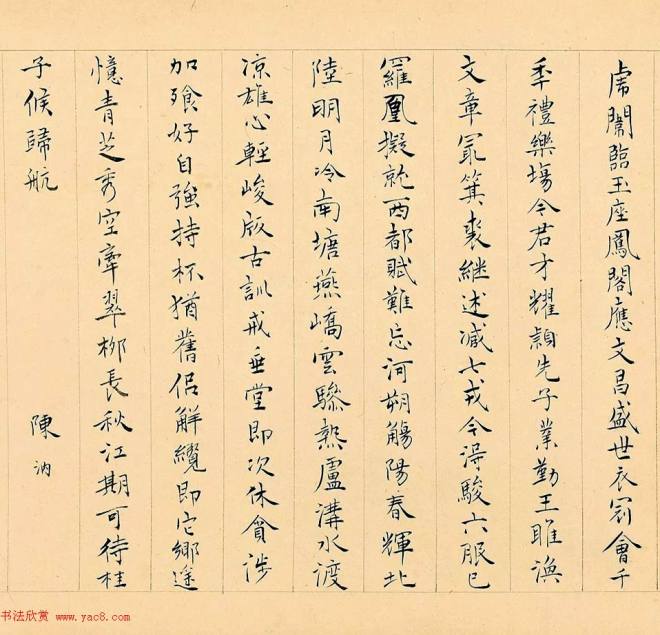 虎闈臨玉座鳳閣應文昌盛世衣冠會千
季禮樂場令君才耀穎先子業勤王睢渙
文章冣箕裘継述減七戎今淂駿六服已
羅凰擬就西都賦難忘河朔觴陽春輝北
陸明月冷南塘燕嶠雲驂熱盧溝水渡
凉雄心輕峻阪古訓戒垂堂即次休貪涉
加飱好自強持杯猶舊侣解纜即它鄉遥
憶青芝秀空牽翠柳長秋江期可待桂
子候歸航
陳汭
书法欣赏 www.yac8.com